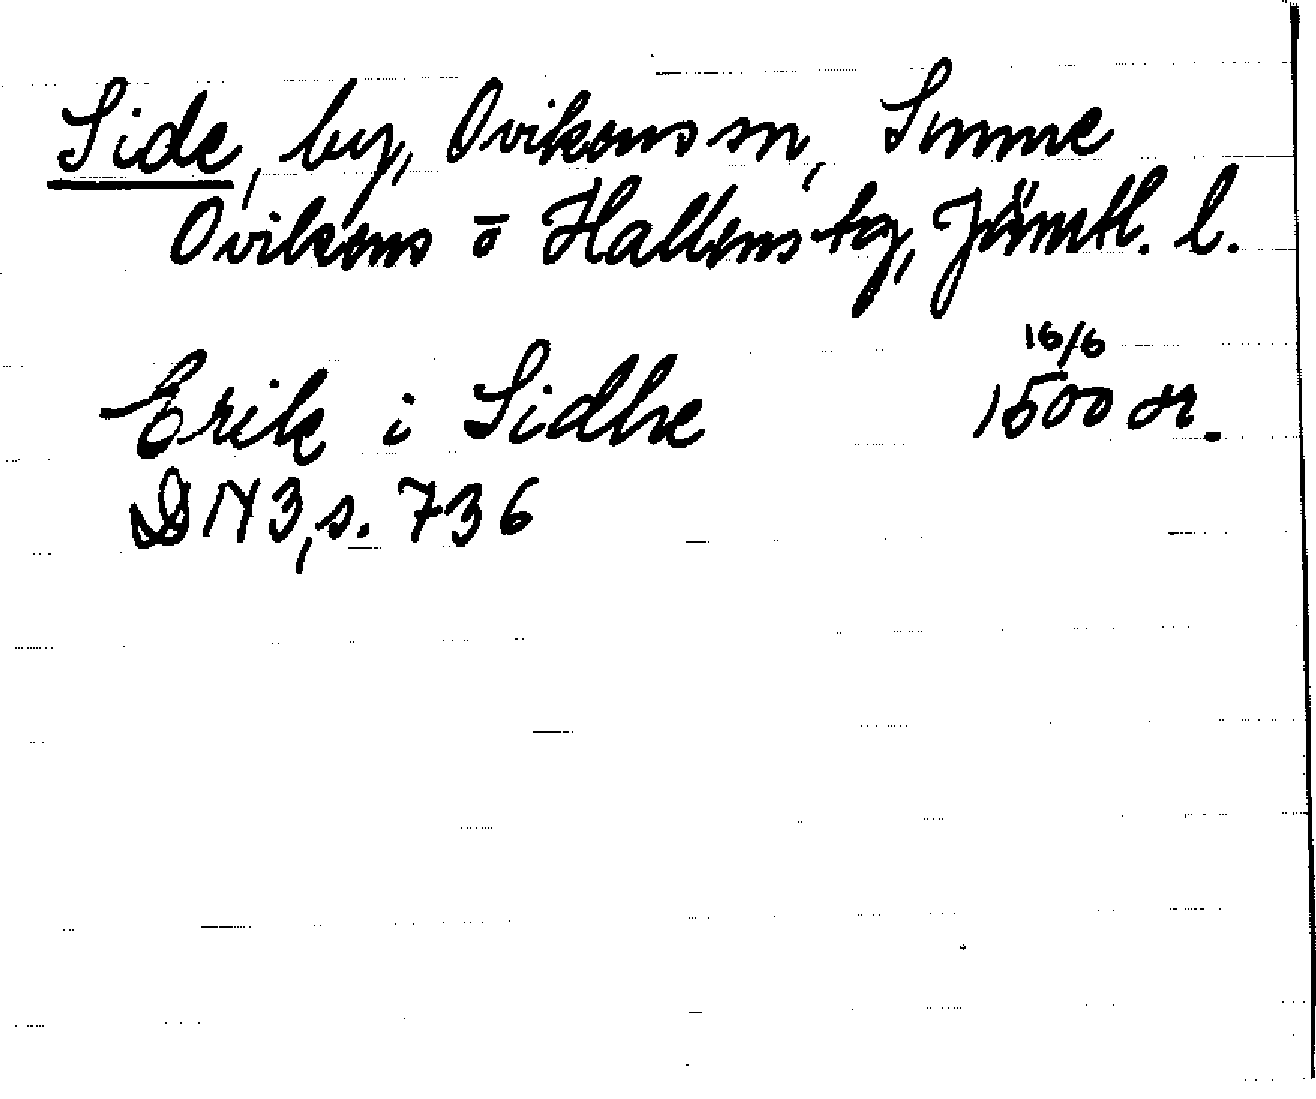 Side, by, Ovikens sn, Sunne
Ovikens o Hallens tg, Jämtl. l.
Erik i Sidhe 16/6 1500 or.
DN 3, s. 736